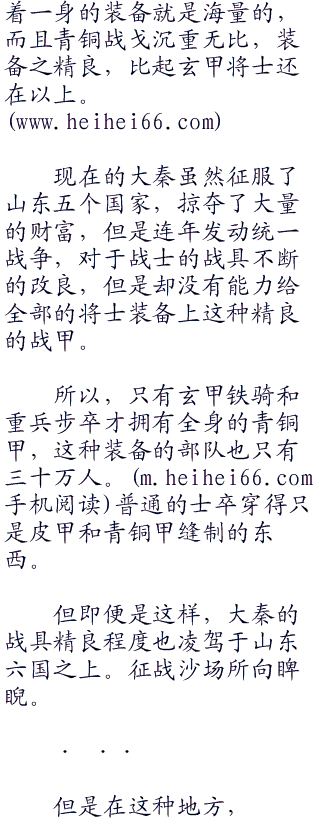 着一身的装备就是海量的，
而且青铜战戈沉重无比，装
备之精良，比起玄甲将士还
在以上。
(www.heihei66.com)
现在的大秦虽然征服了
山东五个国家，掠夺了大量
的财富，但是连年发动统一
战争，对于战士的战具不断
的改良，但是却没有能力给
全部的将士装备上这种精良
的战甲。
所以，只有玄甲铁骑和
重兵步卒才拥有全身的青铜
甲，这种装备的部队也只有
三十万人。(m.heihei66.com
手机阅读)普通的士卒穿得只
是皮甲和青铜甲缝制的东
西。
但即便是这样，大秦的
战具精良程度也凌驾于山东
六国之上。征战沙场所向睥
睨。
. . .
但是在这种地方，